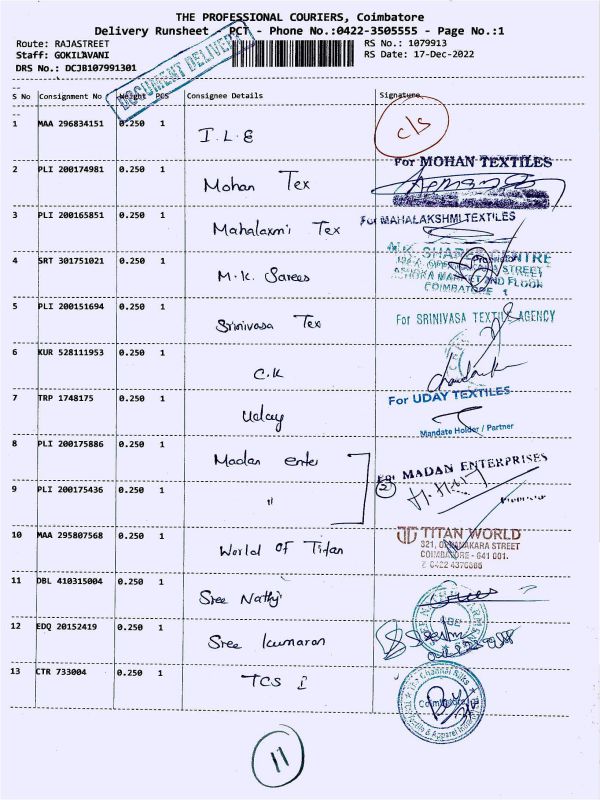 THE PROFESSIONAL COURIERS, Coimbatore
Delivery Runsheet - PCT - Phone No.:0422-3505555 - Page No.:1
Route: RAJASTREET RS No.: 1079913
Staff: GOKILAVANI RS Date: 17-Dec-2022
DRS No.: DCJB107991301
DOCUMENT DELIVERY
S No Consignment No Weight PCS Consignee Details Signature
1 MAA 296834151 0.250 1 I.L.E c/s
2 PLI 200174981 0.250 1 Mohan Tex For MOHAN TEXTILES
3 PLI 200165851 0.250 1 Mahalaxmi Tex For MAHALAKSHMI TEXTILES
4 SRT 301751021 0.250 1 M.K. Sarees
STREET
ASHOKA MARKET AND FLOOR
COIMBATORE 1
5 PLI 200151694 0.250 1 Srinivasa Tex For SRINIVASA TEXTIL AGENCY
6 KUR 528111953 0.250 1 C.K
7 TRP 1748175 0.250 1 Uday For UDAY TEXTILES
Mandate Holder / Partner
8 PLI 200175886 0.250 1 Madan enter For MADAN ENTERPRISES
9 PLI 200175436 0.250 1 " 2
10 MAA 295807568 0.250 1 World Of Titan TITAN WORLD
321, STREET
COIMBATORE - 641 001.
11 DBL 410315004 0.250 1 Sree Nathji
12 EDQ 20152419 0.250 1 Sree Kumaran
13 CTR 733004 0.250 1 TCS
The Channai Silks
Coimbatore
Textile & Apparel
11